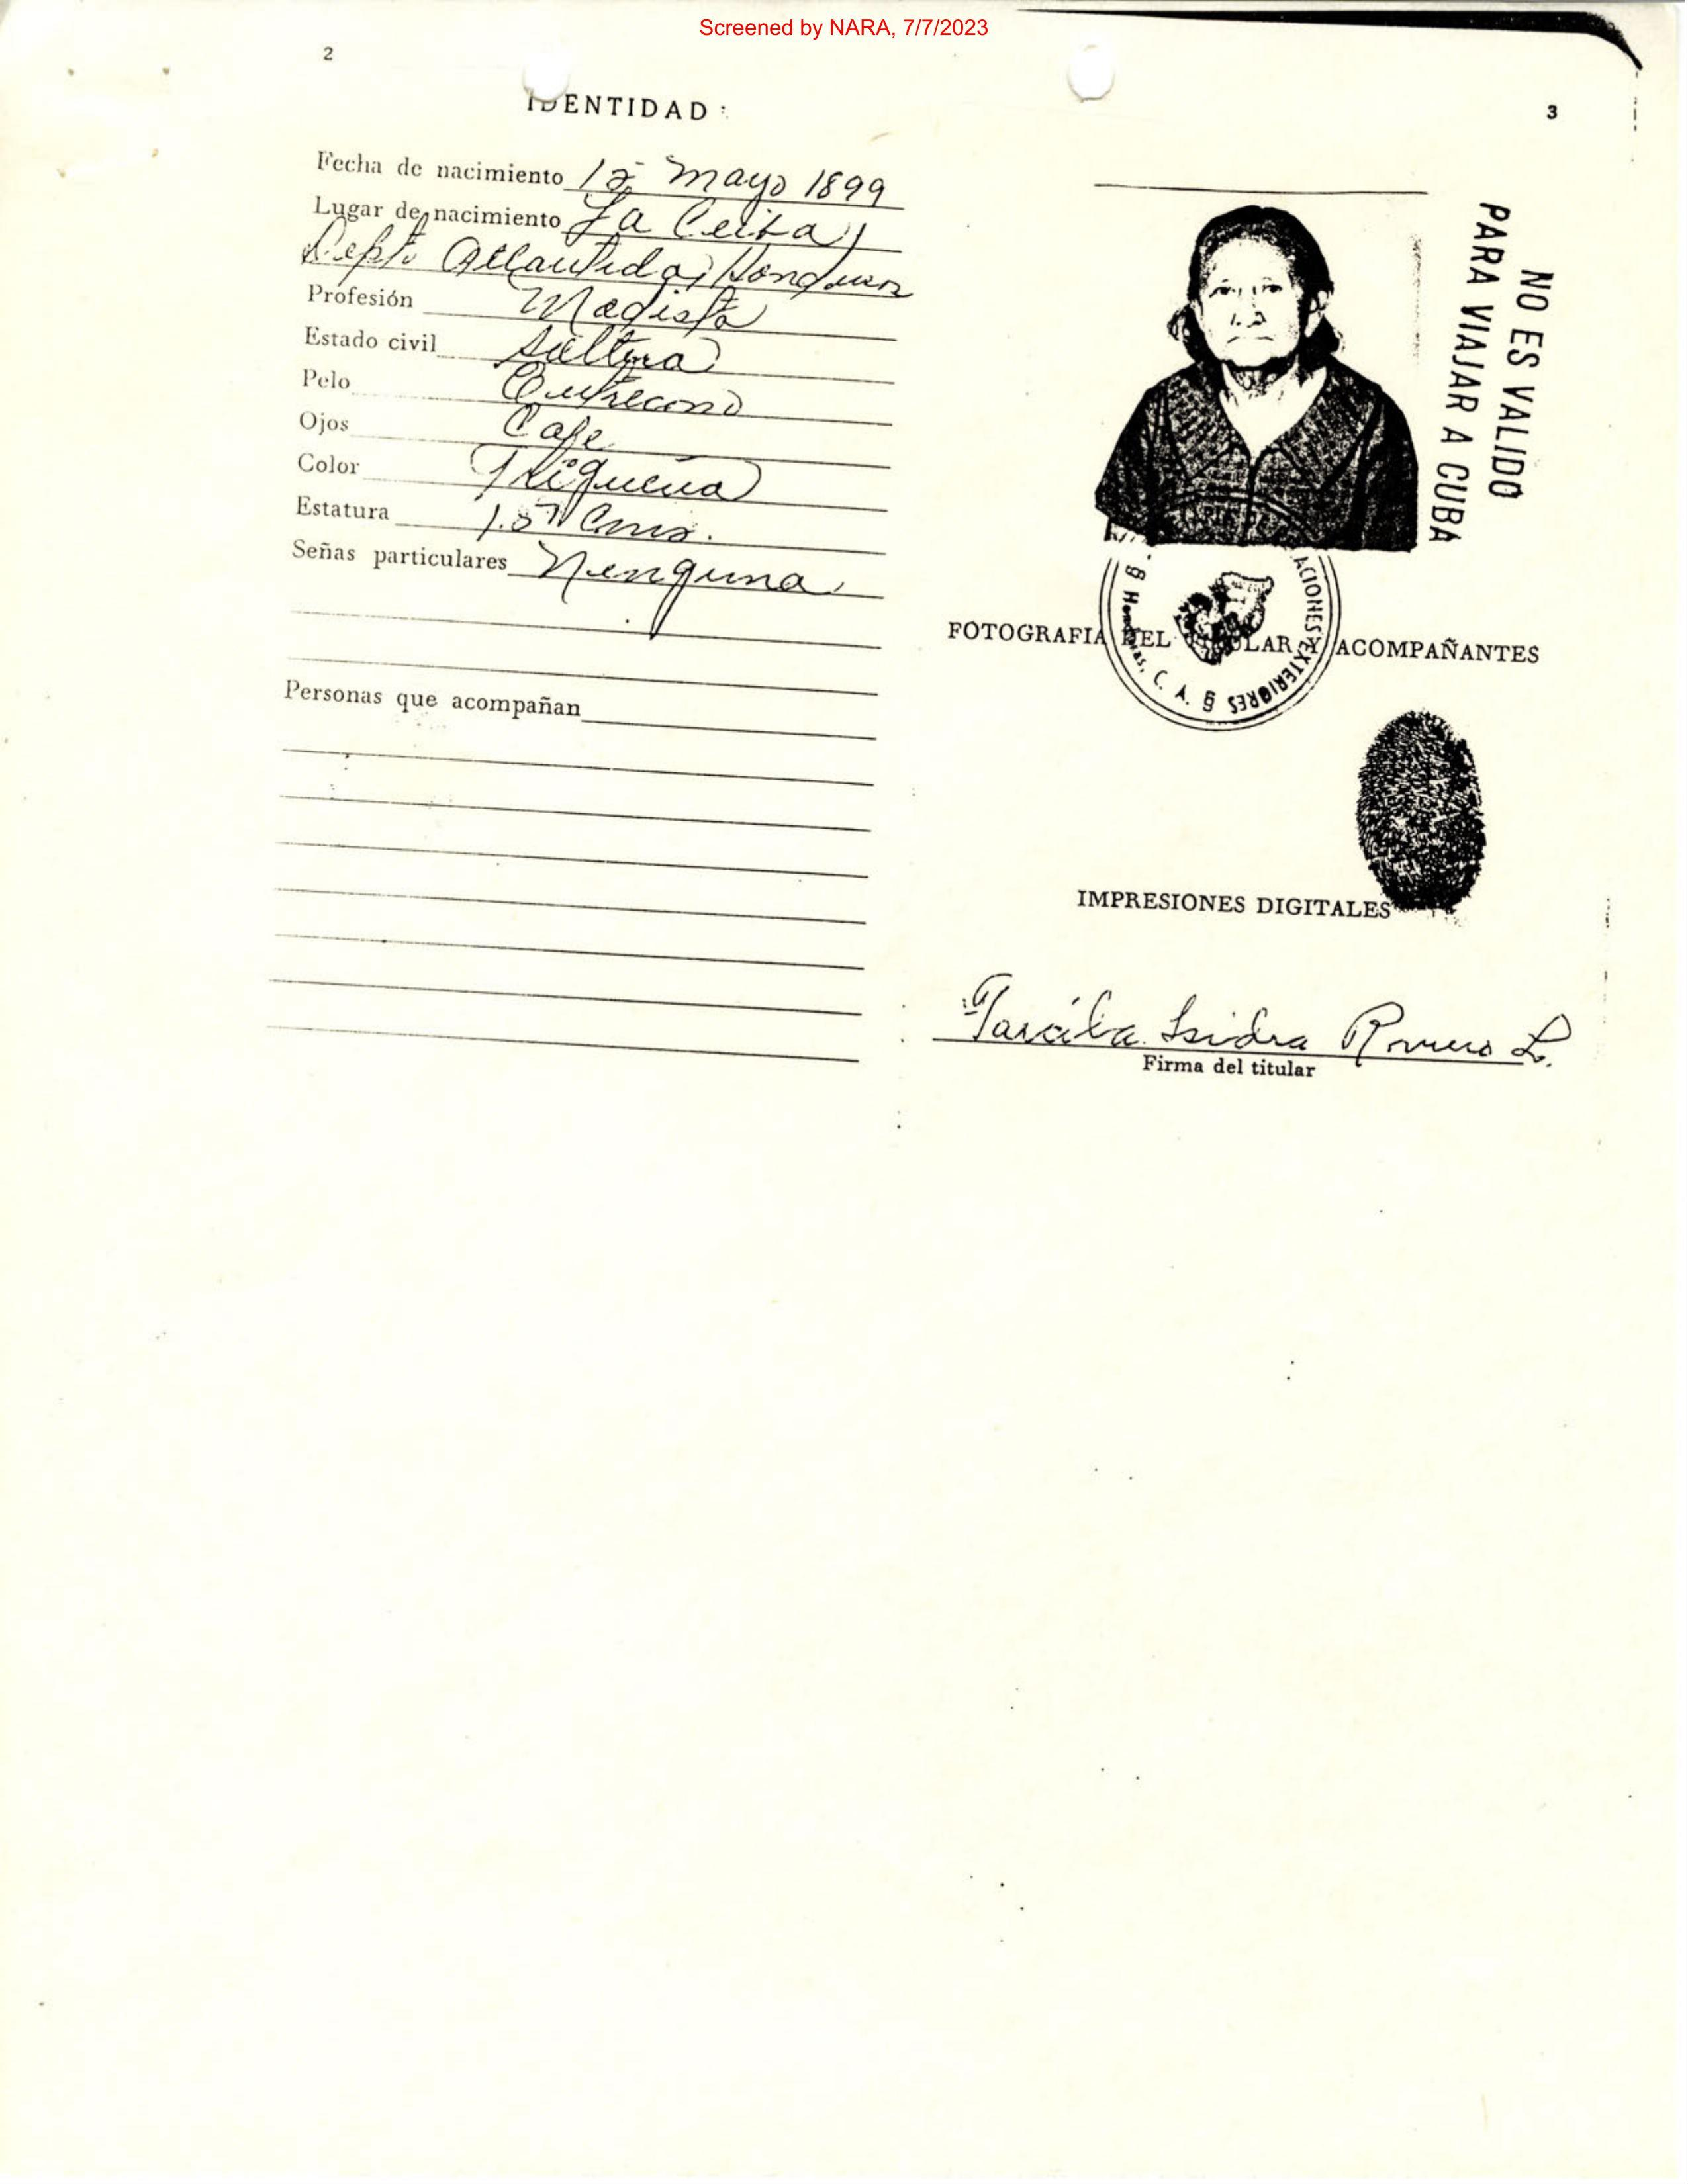 Screened by NARA, 7/7/2023
2
IDENTIDAD:
Fecha de nacimiento 12 Mayo 1899
Lugar de nacimiento La Ceiba,
Depto Atlantida, Honduras
Profesión Modista
Estado civil Soltera
Pelo Entrecano
Ojos Cafe
Color Trigueña
Estatura 1.57 Cms.
Señas particulares Ninguna
Personas que acompañan
3
NO ES VALIDO
PARA VIAJAR A CUBA
ACIONES EXTERIORES § Honduras, C. A. §
FOTOGRAFIA DEL TITULAR Y ACOMPAÑANTES
IMPRESIONES DIGITALES
Tarcila Isidra Romero L.
Firma del titular